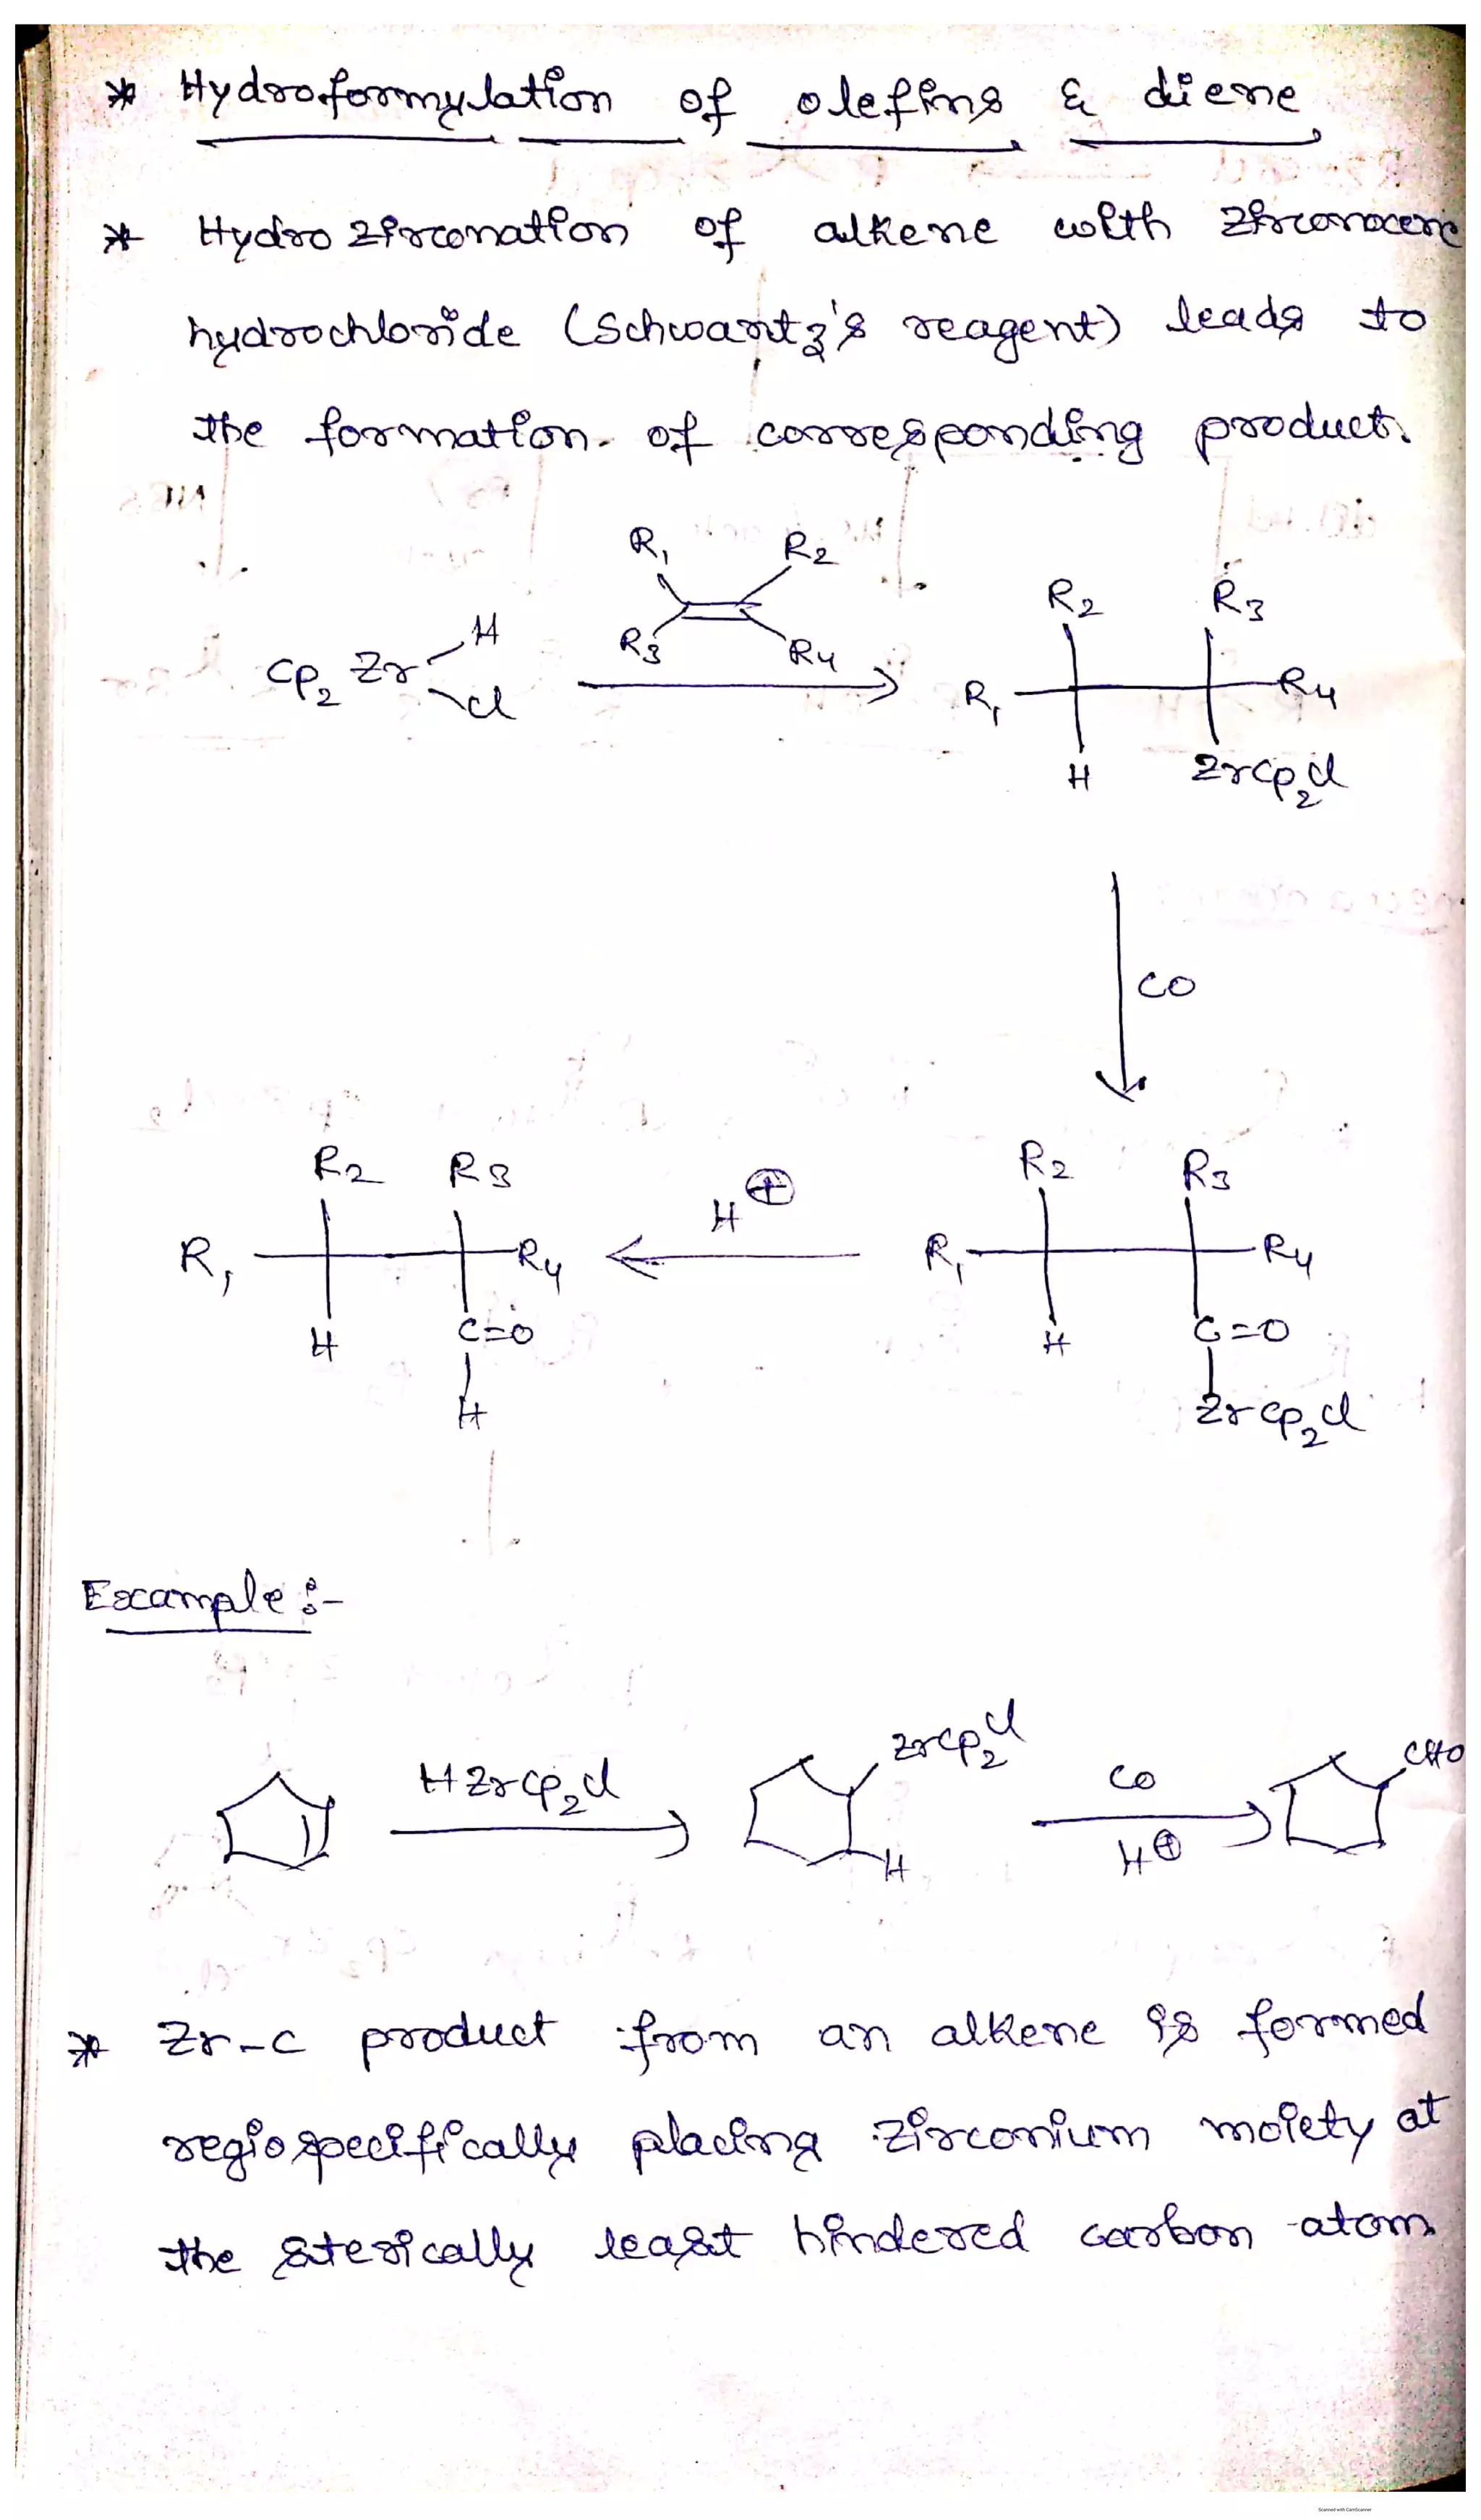 * Hydroformylation of olefins & diene
* Hydro zirconation of alkene with zirconocene
hydrochloride (Schwartz's reagent) leads to
the formation of corresponding product.
R1 R2
R3 R4
Cp2 Zr H
Cl
R2 R3
R1 R4
H ZrCp2Cl
CO
R2 R3
R1 R4
H C=O
H
H⊕
R2 R3
R1 R4
H C=O
ZrCp2Cl
Example :-
HZrCp2Cl
ZrCp2Cl
H
CO
H⊕
CHO
* Zr-C product from an alkene is formed
regiospecifically placing zirconium moiety at
the sterically least hindered carbon atom
Scanned with CamScanner